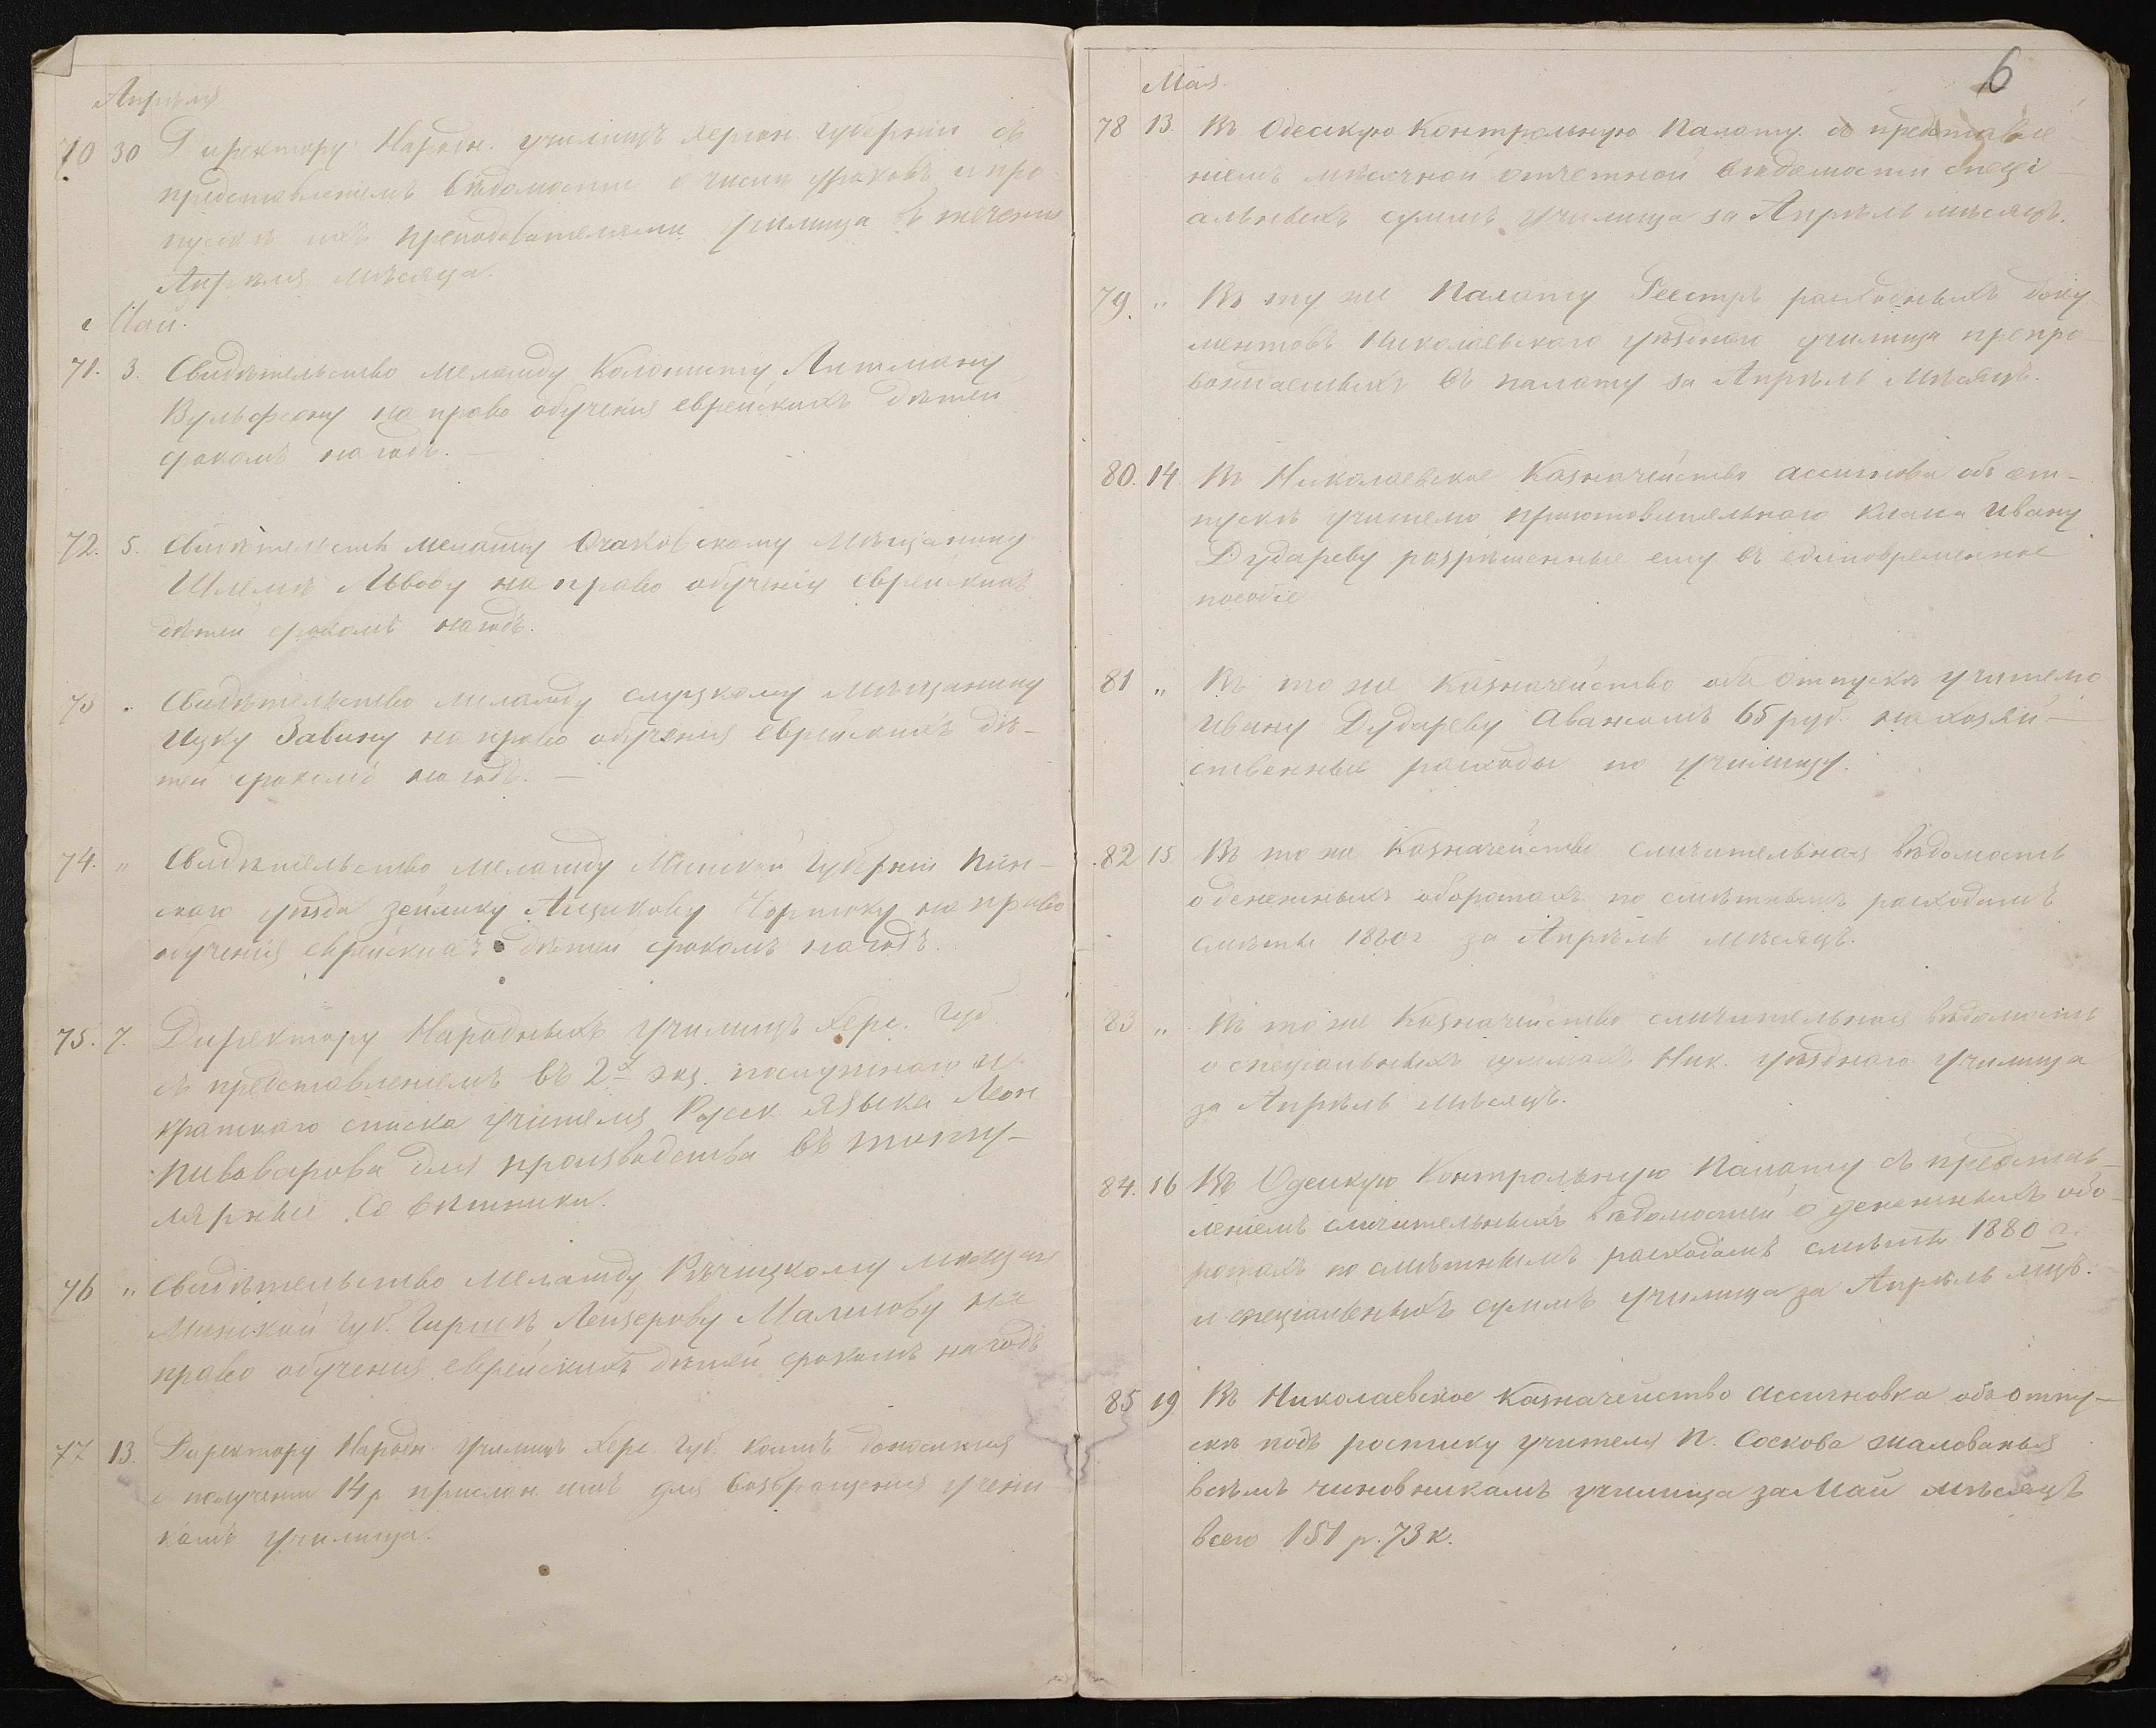 Апрѣля
70 30 Директору Народн. училищъ Херсон. губерніи съ
представленіемъ вѣдомости о числѣ уроковъ и про-
пускѣ ихъ преподавателями училища въ теченіи
Апрѣля мѣсяца.
Май.
71. 3. Свидѣтельство меламду Колонисту Литману
Вульфсону на право обученія еврейскихъ дѣтей
срокомъ на годъ. —
72. 5. Свидѣтельств меламду Очаковскому мѣщанину
Шлемѣ Львову на право обученія еврейскихъ
дѣтей срокомъ на годъ.
73 " Свидѣтельство меламду слуцкому мѣщанину
Ицку Завину на право обученія еврейскихъ дѣ-
тей срокомъ на годъ. —
74. " Свидѣтельство меламду Минской губерніи Пин-
скаго уѣзда Зейлику Черняку на право
обученія еврейскихъ дѣтей срокомъ на годъ.
75. 7. Директору Народныхъ училищъ Херс. Губ.
съ представленіемъ въ 2х экз. послужного и
краткаго списка учителя Русск. языка Леон
Пивоварова для производства въ титу-
лярные Совѣтники.
76 " Свидѣтельство меламду Рѣчицкому мѣщан
Минской губ. Гиршѣ Лейзерову Малилову на
право обученія еврейскихъ дѣтей срокомъ на годъ
77 13. Директору Народн. училищъ Херс. Губ. донесенія
о полученіи 14 р. прислан. имъ для возвращенія учени
камъ училища.
6
Мая.
78 13. Въ Одесскую Контрольную Палату съ представле
ніемъ мѣсячной отчетной вѣдомости спеці-
альныхъ суммъ училища за Апрѣль мѣсяцъ.
79. " Въ ту же Палату Реестръ расходныхъ доку
ментовъ Николаевскаго уѣзднаго училища препро-
вождаемыхъ въ палату за Апрѣль мѣсяцъ.
80. 14. Въ Николаевское Казначейство ассигновка объ от-
пускѣ учителю приготовительнаго класса Ивану
Дудареву разрѣшенные ему въ единовременное
пособіе
81 " Въ то же Казначейство объ отпускѣ учителю
Ивану Дудареву авансомъ 65 руб. на хозяй-
ственные расходы по училищу.
82 15 Въ то же Казначейство сличительная вѣдомость
о денежныхъ оборотахъ по смѣтнымъ расходамъ
смѣты 1880 г за Апрѣль мѣсяцъ.
83 " Въ то же Казначейство сличительная вѣдомость
о спеціальныхъ суммахъ Ник. уѣзднаго училища
за Апрѣль мѣсяцъ.
84. 16 Въ Одесскую Контрольную Палату съ представ-
леніемъ сличительныхъ вѣдомостей о денежныхъ обо-
ротахъ по смѣтнымъ расходамъ смѣты 1880 г.
и спеціальныхъ суммъ училища за Апрѣль мцъ.
85 19 Въ Николаевское Казначейство ассигновка объ отпу-
скѣ подъ росписку учителя П. Соскова жалованья
всѣмъ чиновникамъ училища за Май мѣсяцъ
всего 151 р. 73 к.